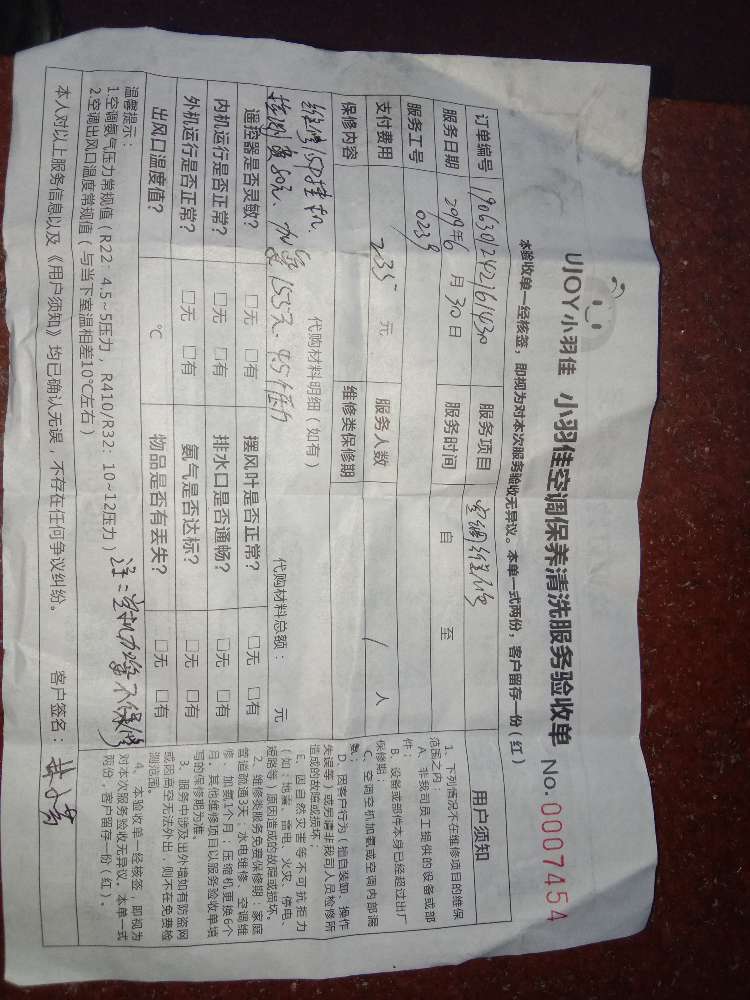 UJOY小羽佳 小羽佳空调保养清洗服务验收单 No. 0007454
本验收单一经核签，即视为对本次服务验收无异议。本单一式两份，客户留存一份（红）
订单编号 服务项目 空调维修
服务日期 2019年6月30日 服务时间 自 至
服务工号 0239
支付费用 235 元 服务人数 1 人
保修内容 维修类保修期
代购材料明细（如有） 代购材料总额： 元
维修1.5P挂机
检测费80元. 加氨155元. 4.5个压力
遥控器是否灵敏？ □无 □有 摆风叶是否正常？ □无 □有
内机运行是否正常？ □无 □有 排水口是否通畅？ □无 □有
外机运行是否正常？ □无 □有 氨气是否达标？ □无 □有
出风口温度值？ ℃ 物品是否有丢失？ □无 □有
温馨提示：
1.空调氨气压力常规值（R22：4.5~5压力，R410/R32：10~12压力）
2.空调出风口温度常规值（与当下室温相差10℃左右）
注：空机加氨不保修
本人对以上服务信息以及《用户须知》均已确认无误，不存在任何争议纠纷。 客户签名：
用户须知
1、下列情况不在维修项目的维保
范围之内：
A、非我司员工提供的设备或部
件；
B、设备或部件本身已经超过出厂
保修期；
C、空调空机加氨或空调内部漏
氨；
D、因客户行为（擅自装卸、操作
失误等）或另请非我司人员检修所
造成的故障或损坏；
E、因自然灾害等不可抗拒力
（如：地震、雷电、火灾、停电、
短路等）原因造成的故障或损坏。
2、维修类服务免费保修期：家庭
管道疏通3天；水电维修、空调维
修、加氨1个月；压缩机更换6个
月；其他维修项目以服务验收单填
写的保修期为准。
3、服务中涉及出外墙如有防盗网
或因高空无法外出，则不在免费检
测范围。
4、本验收单一经核签，即视为
对本次服务验收无异议。本单一式
两份，客户留存一份（红）。